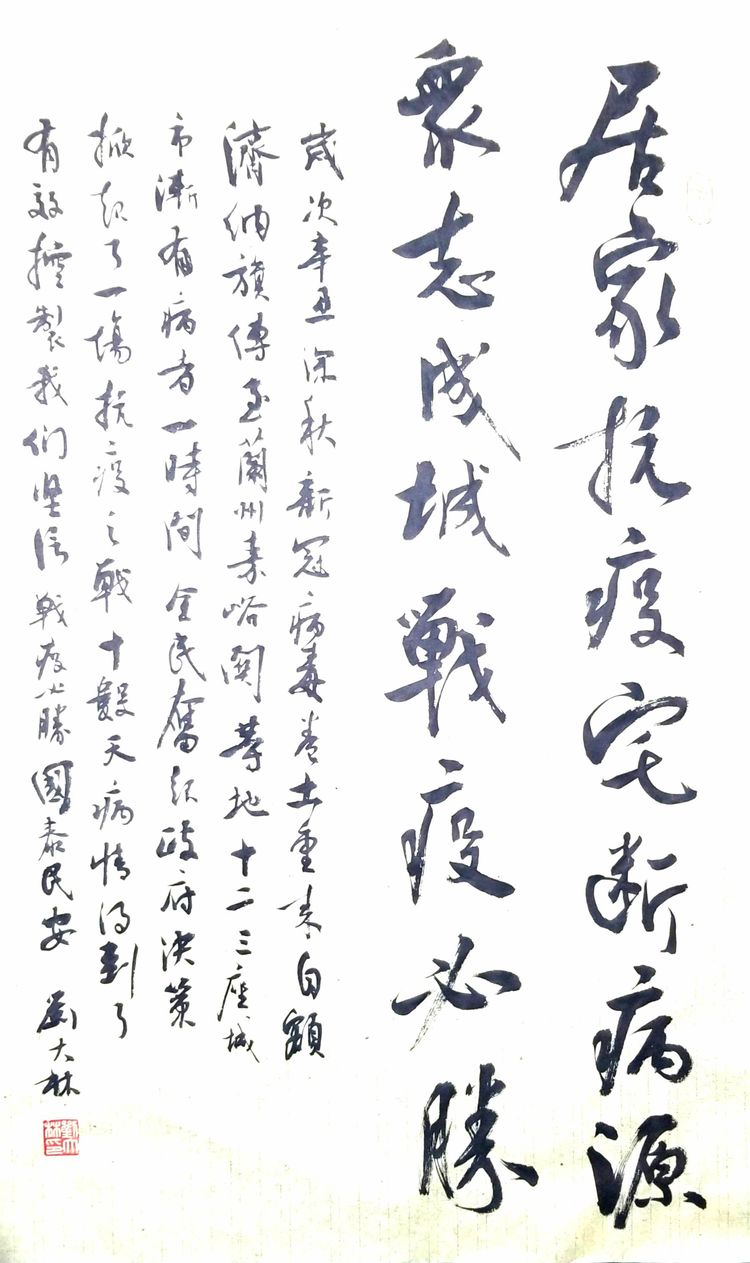 居家抗疫宅断病源
衆志成城戰疫必勝
歲次辛丑深秋新冠病毒卷土重来自額
濟納旗傳至蘭州嘉峪関等地十二三座城
市漸有病者一時間全民奮起政府決策
掀起了一場抗疫之戰十數天病情得到了
有效控製我们坚信戰疫必勝國泰民安
劉大林